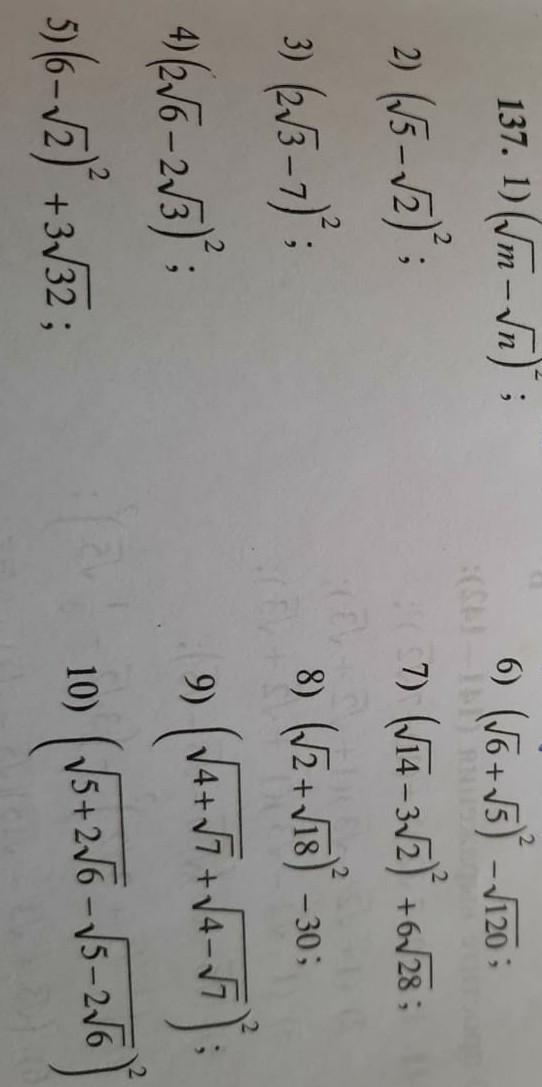 137. 1) (√m − √n)² ;
2) (√5 − √2)² ;
3) (2√3 − 7)² ;
4) (2√6 − 2√3)² ;
5) (6 − √2)² + 3√32 ;
6) (√6 + √5)² − √120 ;
7) (√14 − 3√2)² + 6√28 ;
8) (√2 + √18)² − 30 ;
9) (√(4+√7) + √(4−√7))² ;
10) (√(5+2√6) − √(5−2√6))²